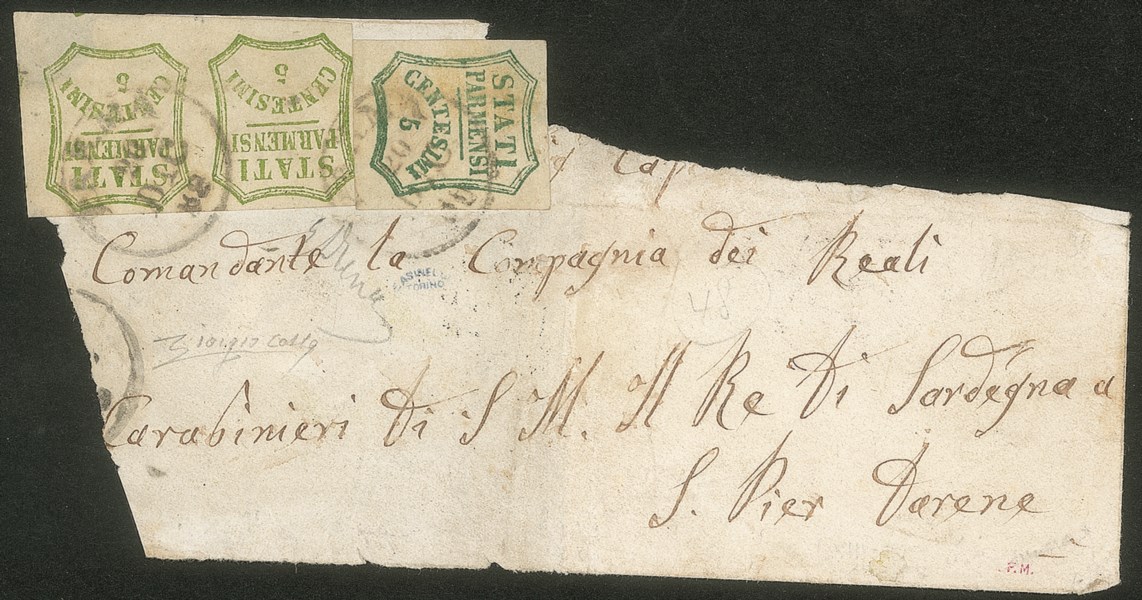 STATI
PARMENSI
CENTESIMI
5
STATI
PARMENSI
CENTESIMI
5
STATI
PARMENSI
CENTESIMI
5
Comandante la Compagnia dei Reali
48
Carabinieri Di S. M. Il Re Di Sardegna a
S. Pier Darene
F.M.